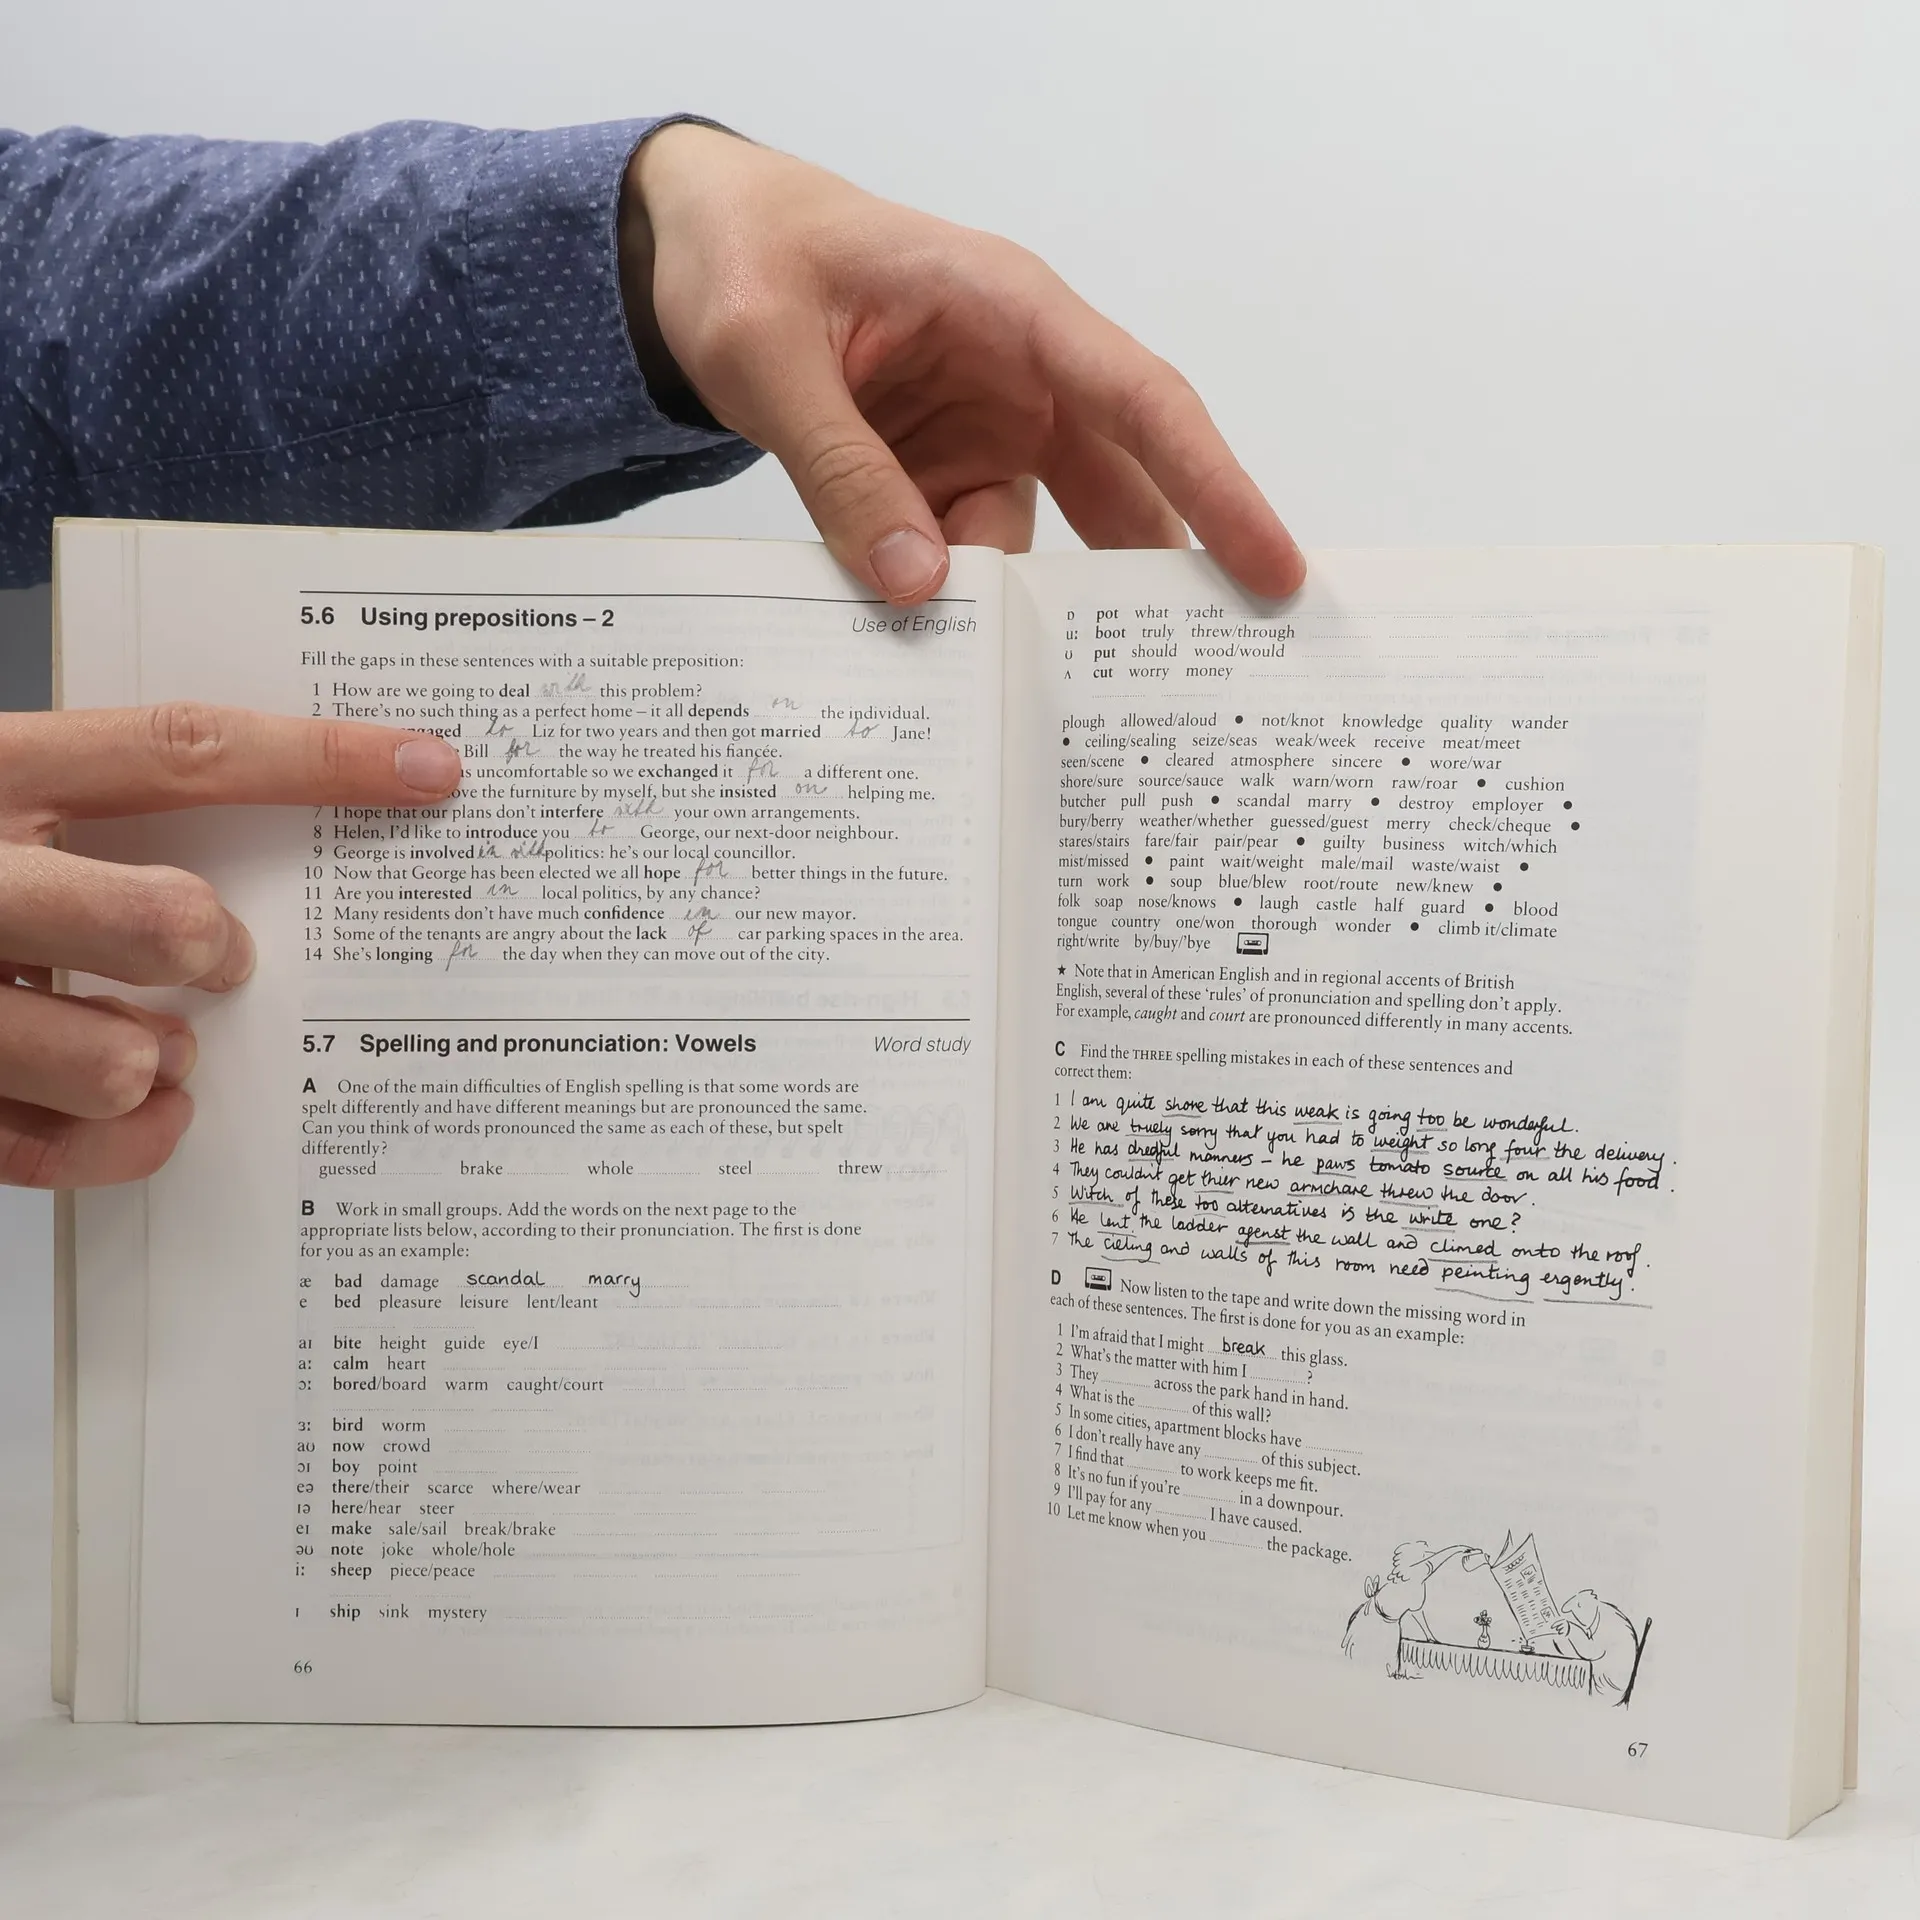 5.6 Using prepositions – 2
Use of English
Fill the gaps in these sentences with a suitable preposition:
1 How are we going to deal with this problem?
2 There's no such thing as a perfect home – it all depends on the individual.
to Liz for two years and then got married to Jane!
Bill for the way he treated his fiancée.
uncomfortable so we exchanged it for a different one.
the furniture by myself, but she insisted on helping me.
7 I hope that our plans don't interfere with your own arrangements.
8 Helen, I'd like to introduce you to George, our next-door neighbour.
9 George is involved in with politics: he's our local councillor.
10 Now that George has been elected we all hope for better things in the future.
11 Are you interested in local politics, by any chance?
12 Many residents don't have much confidence in our new mayor.
13 Some of the tenants are angry about the lack of car parking spaces in the area.
14 She's longing for the day when they can move out of the city.
5.7 Spelling and pronunciation: Vowels
Word study
A One of the main difficulties of English spelling is that some words are
spelt differently and have different meanings but are pronounced the same.
Can you think of words pronounced the same as each of these, but spelt
differently?
guessed brake whole steel threw
B Work in small groups. Add the words on the next page to the
appropriate lists below, according to their pronunciation. The first is done
for you as an example:
æ bad damage scandal marry
e bed pleasure leisure lent/leant
aɪ bite height guide eye/I
ɑː calm heart
ɔː bored/board warm caught/court
ɜː bird worm
aʊ now crowd
ɔɪ boy point
eə there/their scarce where/wear
ɪə here/hear steer
eɪ make sale/sail break/brake
əʊ note joke whole/hole
iː sheep piece/peace
ɪ ship sink mystery
66
ɒ pot what yacht
uː boot truly threw/through
ʊ put should wood/would
ʌ cut worry money
plough allowed/aloud • not/knot knowledge quality wander
• ceiling/sealing seize/seas weak/week receive meat/meet
seen/scene • cleared atmosphere sincere • wore/war
shore/sure source/sauce walk warn/worn raw/roar • cushion
butcher pull push • scandal marry • destroy employer •
bury/berry weather/whether guessed/guest merry check/cheque •
stares/stairs fare/fair pair/pear • guilty business witch/which
mist/missed • paint wait/weight male/mail waste/waist •
turn work • soup blue/blew root/route new/knew •
folk soap nose/knows • laugh castle half guard • blood
tongue country one/won thorough wonder • climb it/climate
right/write by/buy/'bye
★ Note that in American English and in regional accents of British
English, several of these 'rules' of pronunciation and spelling don't apply.
For example, caught and court are pronounced differently in many accents.
C Find the THREE spelling mistakes in each of these sentences and
correct them:
1 I am quite shore that this weak is going too be wonderful.
2 We are truely sorry that you had to weight so long four the delivery.
3 He has dredful manners – he paws tomato source on all his food.
4 They couldn't get thier new armchare threw the door.
5 Witch of these too alternatives is the write one?
6 He lent the ladder agenst the wall and climed onto the roof.
7 The cieling and walls of this room need peinting ergently.
D Now listen to the tape and write down the missing word in
each of these sentences. The first is done for you as an example:
1 I'm afraid that I might break this glass.
2 What's the matter with him I ?
3 They across the park hand in hand.
4 What is the of this wall?
5 In some cities, apartment blocks have
6 I don't really have any of this subject.
7 I find that to work keeps me fit.
8 It's no fun if you're in a downpour.
9 I'll pay for any I have caused.
10 Let me know when you the package.
67